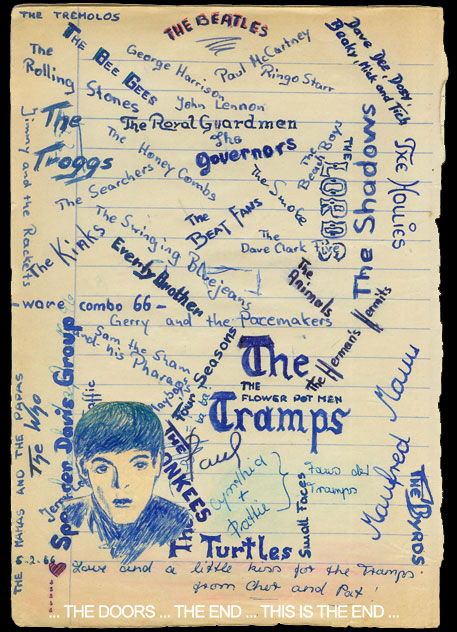 THE TREMOLOS
THE BEATLES
Dave Dee, Dosy,
Beaky, Mick and Tich
The
Rolling
Stones
THE BEE GEES
George Harrison
Paul McCartney
John Lennon
Ringo Starr
The
Troggs
The Royal Guardmen
The
governors
The
Beach Boys
THE
LORDS
The Shadows
The Hollies
Jimmy and the Rackets
The Honey Combs
The Searchers
The Smoke
The
BEAT FANS
The
Dave Clark Five
The Kinks
The Swinging
Bluejeans
Everly Brother
The
Animals
The Herman's Hermits
combo 66 -
Gerry and the Pacemakers
Sam the Sham
and his Pharao
Four Seasons
The
THE
FLOWER POT MEN
Tramps
Manfred Mann
THE BYRDS
THE MAMAS AND THE PAPAS
The Who
Spencer Davis Group
THE
Paul
Cynthia
+
Pattie
Fans der
Tramps
Small Faces
The Turtles
2.66
Love and a little kiss for the Tramps.
from Cher and Pat!
... THE DOORS ... THE END ... THIS IS THE END ...